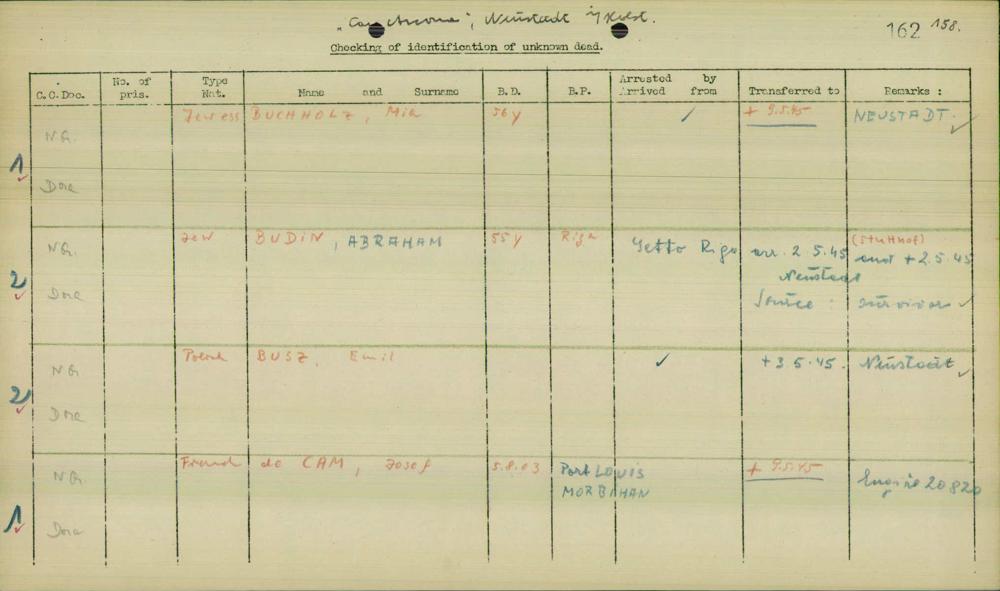 "Cap Arcona", Neustadt i/Holst.
162 158.
Checking of identification of unknown dead.
C.C.Doc. No. of pris. Type Nat. Name and Surname B.D. B.P. Arrested by Arrived from Transferred to Remarks :
1 N.G. Jewess BUCHHOLZ, Mia 56y ✓ + 9.5.45 NEUSTADT. ✓
Dora
2 N.G. Jew BUDIN, ABRAHAM 55y Riga Getto Riga arr. 2.5.45 (Stutthof) and + 2.5.45
Neustadt
Dora Source : survivors ✓
2 N.G. Polish BUSZ, Emil ✓ +3.5.45. Neustadt ✓
Dora
1 N.G. French de CAM, Josef 5.8.03 Port LOUIS + 9.5.45
MORBIHAN 20820
Dora